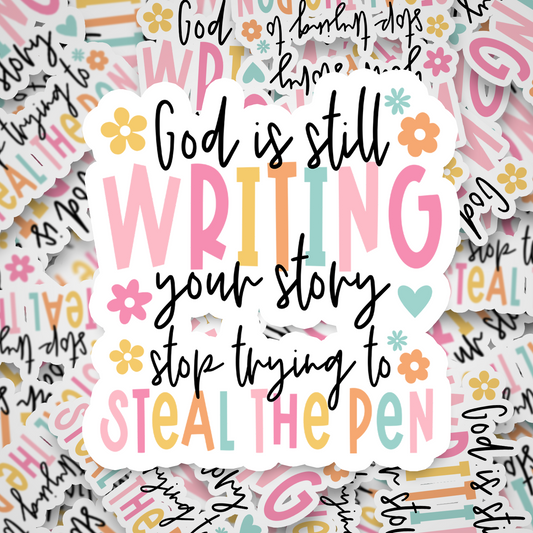 God is still
WRITING
your story
stop trying to
STEAL THE PEN